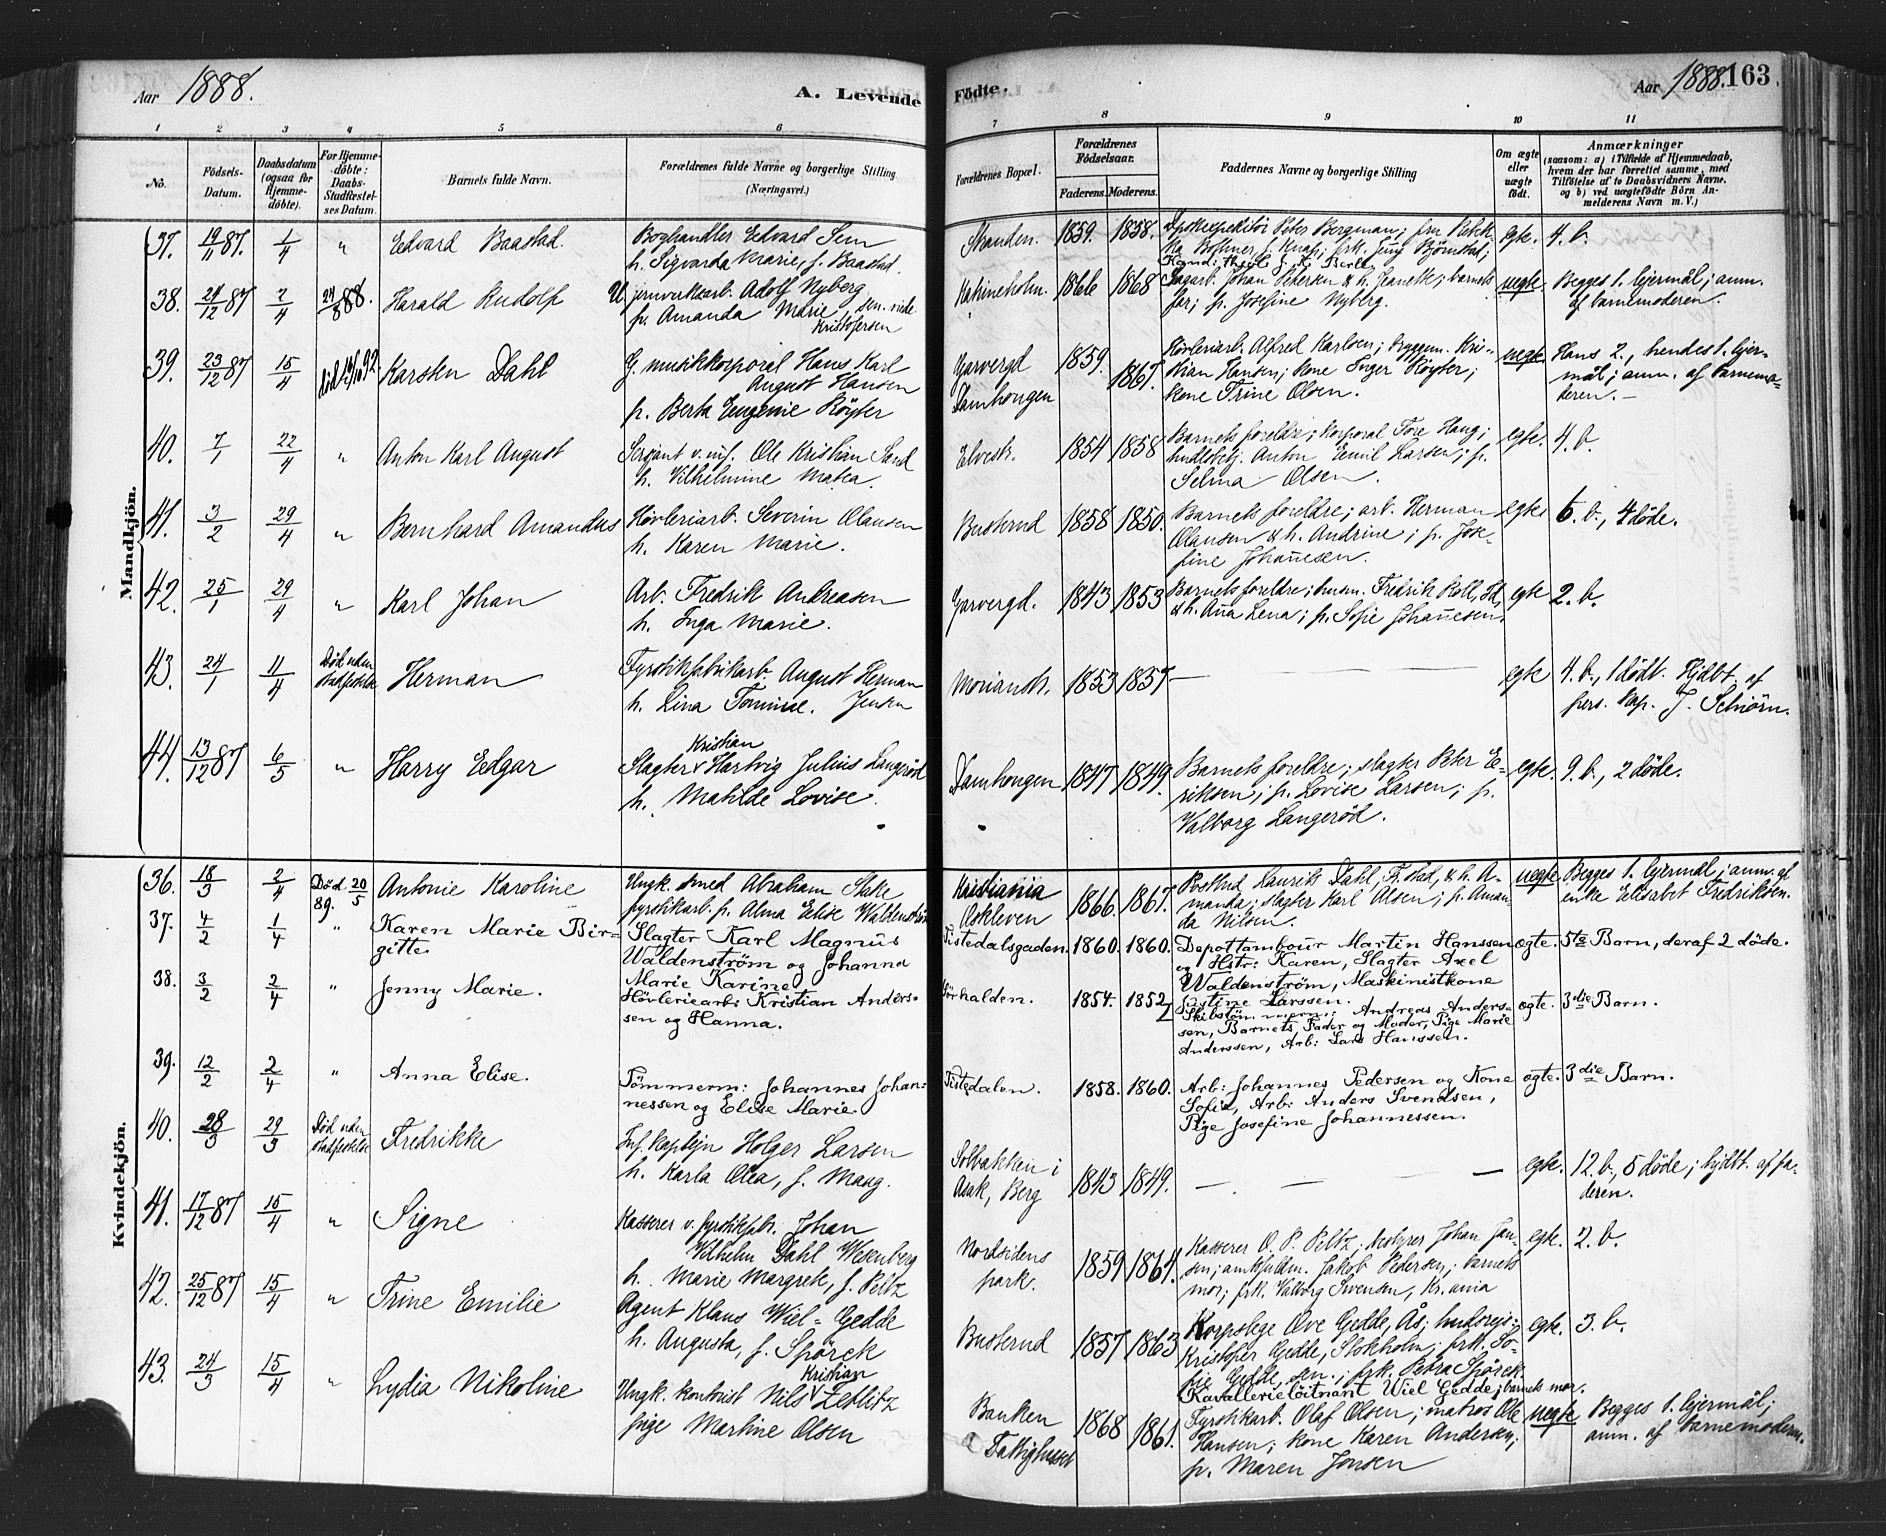 Aar 1888. A. Levende Födte. Aar 1888. 163
1 2 3 4 5 6 7 8 9 10 11
No. Födsels-Datum. Daabsdatum (ogsaa for Hjemmedöbte). For Hjemmedöbte: Daabs-Stadfæstelses Datum. Barnets fulde Navn. Forældrenes fulde Navne og borgerlige Stilling (Næringsvei.) Forældrenes Bopæl. Forældrenes Födselsaar. Faderens. Moderens. Faddernes Navne og borgerlige Stilling Om ægte eller uægte födt. Anmærkninger (saasom: a) i Tilfælde af Hjemmedaab, hvem der har forrettet samme, med Tilföielse af to Daabsvidners Navne, og b) ved uægtefödte Börn Anmelderens Navn m. V.)
Mandkjön.
37. 19/11 87. 1/4 " Edvard Baastad. Boghandler Edvard Sem
h. Sigvarda Marie, f. Baastad.
Stranden. 1859. 1858. Peter Bergman; fru
egte. 4. b.
38. 24/12 87 2/4 24/8 88. Harald Rudolf U jernverksarb. Adolf Nyberg
p. Amanda Marie
Kristofersen
Katrineholm. 1866 1868 Johan Petersen & h. Jeanette; barnets
far; p. Josefine Nyberg.
uegte Begges 1. lejermål; anm.
af barnemoderen.
39. 23/12 87 15/4 Karsten Dahl G. musikkorporal Hans Karl
August Hansen
p. Berta Eugenie Röyter
Garvergd
Damhougen
1859. 1867. Hövleriarb. Alfred Karlsen; bryggem. Kri-
stian Hansen; kone Inger Röyter;
kone Trine Olsen.
uegte Hans 2., hendes 1. lejer-
mål; anm. af barnemo-
deren.
40. 7/1 22/4 " Anton Karl August Sersjant v. inf. Ole Kristian Sand
h. Vilhelmine Matea.
Elvestr. 1854 1858 Barnets foreldre; korporal Tore Haug;
Anton Emil Larsen; p.
Selma Olsen.
egte. 4. b.
41. 3/2 29/4 " Bernhard Amandus Hövleriarb. Severin Olausen
h. Karen Marie.
Busterud 1858 1850. Barnets foreldre; arb. Herman
Olausen & h. Andrine; p. Jose-
fine Johannesen.
egte 6. b., 4 döde.
42. 25/1 29/4 " Karl Johan Arb. Fredrik Andreasen
h. Inga Marie.
Garvergd. 1843 1853 Barnets foreldre; husm. Fredrik
& h. Anna Lena; p. Sofie Johannesen.
egte 2. b.
43. 24/1 11/4 Död uden
stadfestelse
Herman Fyrstikfabrikarb. August Herman
h. Lina Tomine. Jensen
1853 1857 — egte 4. b., 1 dödf. Hjdbt. af
pers. kap. J. Schiörn.
44. 13/12 87 6/5 " Harry Edgar Kristian
Slagter Hartvig Julius Langeröd
h. Matilde Lovise.
Damhougen 1847 1849. Barnets foreldre; slagter Peter E-
riksen; p. Lovise Larsen; p.
Valborg Langeröd.
egte. 9. b., 2 döde.
Kvindekjön.
36. 18/3 2/4 Död 20/5
89.
Antonie Karoline Ungk. smed Abraham Stake
fyrstikarb. p. Alma Elise Waldenström
Kristiania
Oskleven
1866. 1867. Laurits Dahl, & h. A-
manda; slagter Karl Olsen; p. Aman-
da Nilsen.
uegte Begges 1. lejermål; anm. af
enke Elisabet Fredriksen.
37. 4/2 1/4 " Karen Marie Bir-
gitte.
Slagter Karl Magnus
Waldenström og Johanna
Marie Karine
Tistedalsgaden. 1860. 1860. Depottambour Martin Hanssen
og Hstr: Karen, Slagter Axel
Waldenström, Maskinistkone
Larssen.
ægte. 5te Barn, deraf 2 døde.
38. 3/2 2/4 " Jenny Marie. Hövleriearb: Kristian Anders-
sen og Hanna.
Sörhalden. 1854. 1852 Skibstömmerm: Andreas Anders-
sen, Barnets Fader og Moder, Pige Marie
Anderssen, Arb: Lars Hanssen.
ægte. 3die Barn.
39. 12/2 2/4 " Anna Elise. Tömmerm: Johannes Johan-
nessen og Elise Marie
Tistedalen. 1858. 1860. Arb: Johannes Pedersen og Kone
Sofie, Arb: Anders Svendsen,
Pige Josefine Johannessen.
ægte. 3die Barn.
40. 28/3 29/3 Död uden
stadfestelse
Fredrikke Inf. kaptejn Holger Larsen
h. Karla Olea, f. Maug.
Solbakken i
Asak, Berg
1843 1849. — egte. 12. b., 5 döde; hjdbt. af fa-
deren.
41. 17/12 87 15/4 " Signe Kasserer v. fyrstikfabr. Johan
Vilhelm Dahl Wesenberg
h. Marie Margrete, f. Peltz
Nordsidens
park.
1859 1864. Kasserer O. P. Peltz; bestyrer Johan Jan-
sen; Jakob Pedersen; barnets
mor; frk. Valborg Svensen, Kr.ania
egte. 2. b.
42. 25/12 87 15/4 " Trine Emilie Agent Klaus Wiel-Gedde
h. Augusta, f. Spörck
Busterud 1857 1863 Korpslege Ove Gedde, Ås;
Kristofer Gedde, Stokholm; frk. So-
fie Gedde, sen.; frk. Petra Spörck
Kavalleriløitnant Wiel Gedde; barnets mor.
egte. 3. b.
43. 24/3 15/4 " Lydia Nikoline Kristian
Ungk. kontorist Nils Zetlitz
pige Martine Olsen
Banken
Fattighuset
1868 1861. Fyrstikarb. Olaf Olsen; matros Ole
Hansen; kone Karen Andersen;
p. Maren Jensen
uegte Begges 1. lejermål;
anm. af barnemoderen.